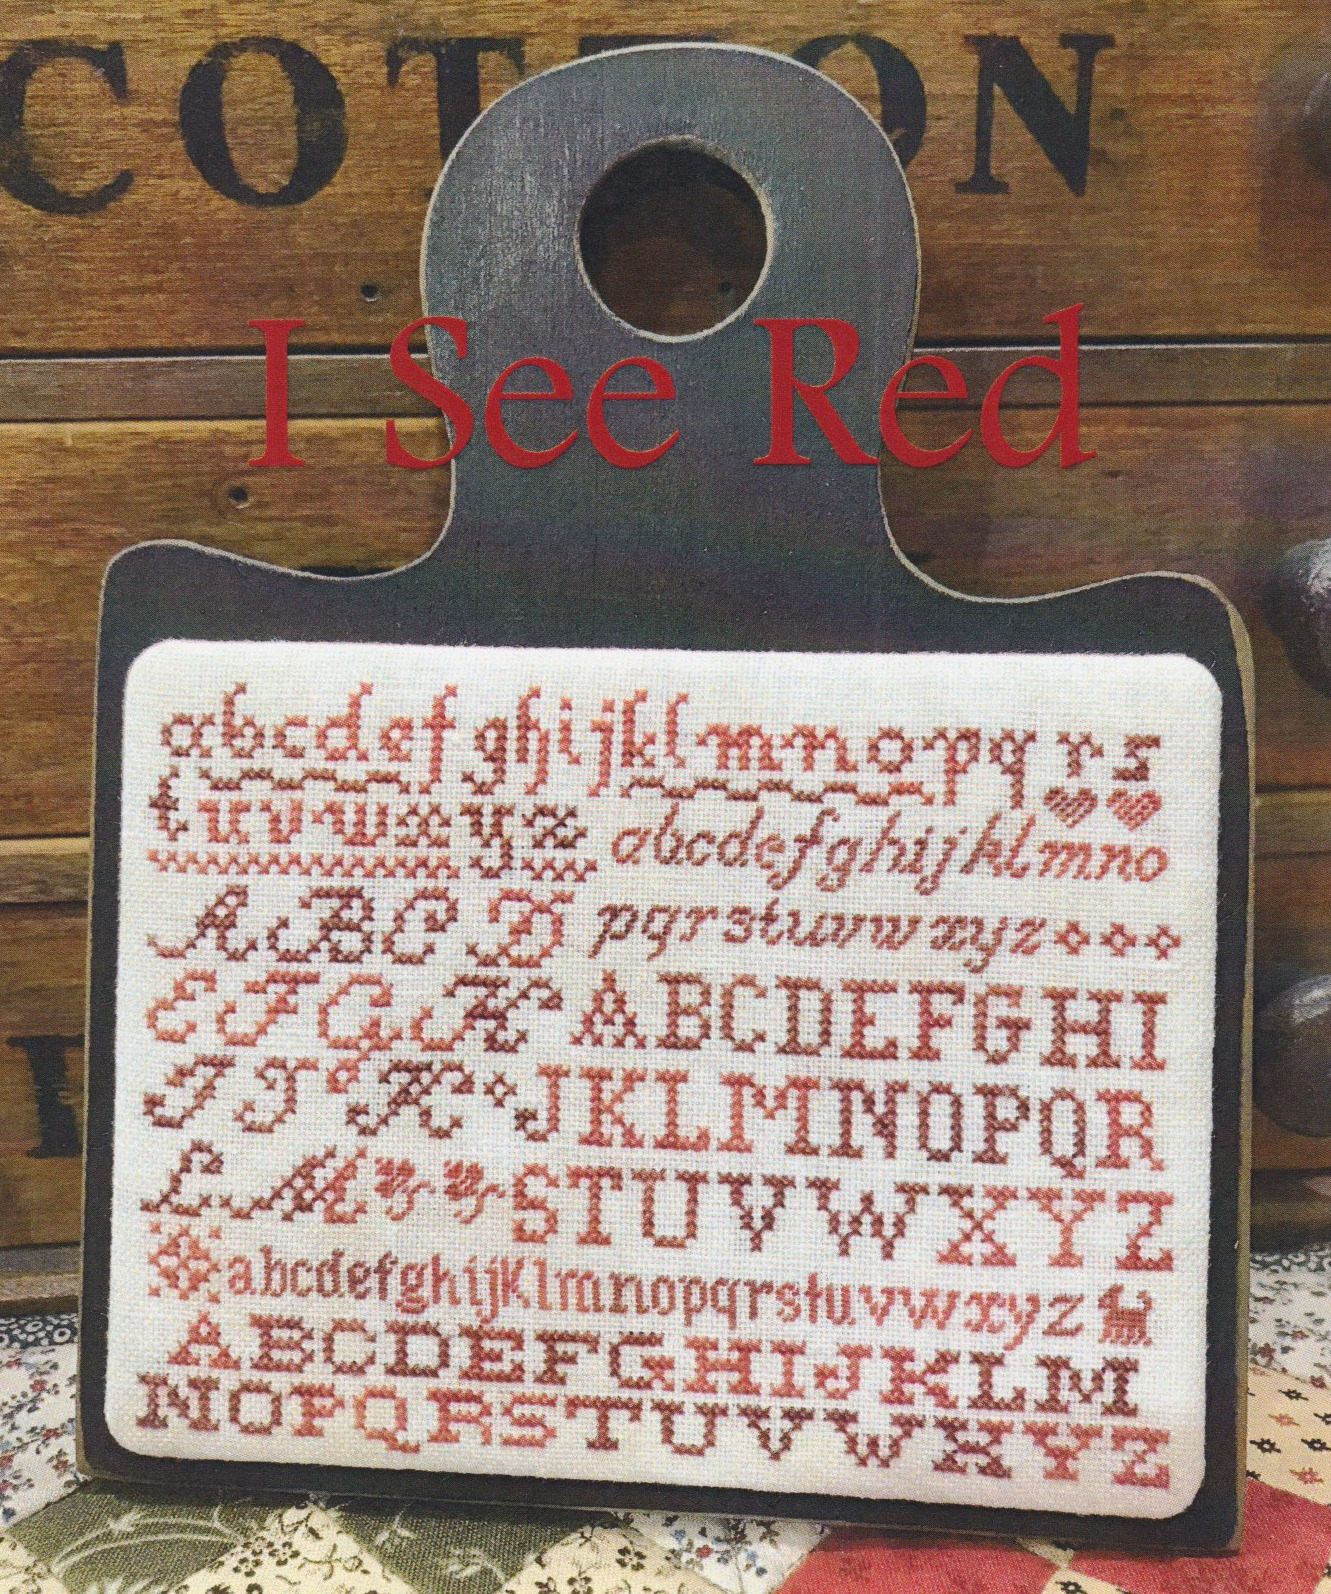 COTTON
I See Red
abcdefghijklmnopqrs
tuvwxyz
abcdefghijklmno
pqrstuvwxyz
ABCD
EFGH
ABCDEFGHI
IJK
JKLMNOPQR
LM
STUVWXYZ
abcdefghijklmnopqrstuvwxyz
ABCDEFGHIJKLM
NOPQRSTUVWXYZ